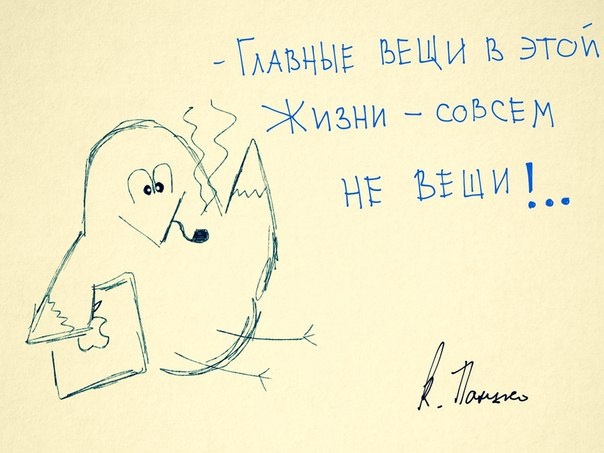 - Главные вещи в этой
жизни – совсем
не вещи!...